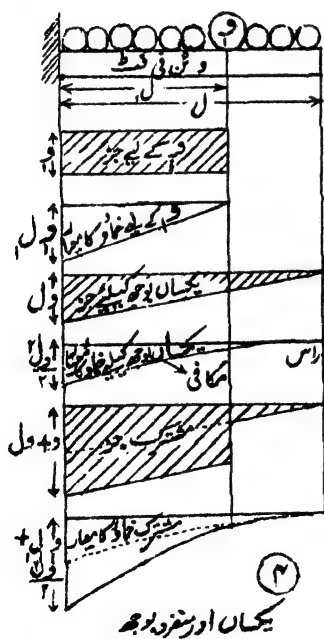 و۱
وزن فی فٹ
ل۱
ل
و۱
و۱ کے لیے جز
و۱ل۱
و۱ کے لیے خماؤ کا معیار
ول
یکساں بوجھ کیلئے جز
ول۲/۲
یکساں بوجھ کیلئے خماؤ کا معیار
راس
مکافی
و۱+ول
مشترک جز
و۱ل۱+ول۲/۲
مشترک خماؤ کا معیار
۴
یکساں اور منفرد بوجھ